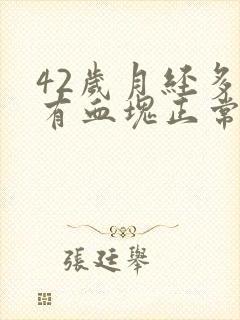 42歲月經多
有血塊正常
張廷舉